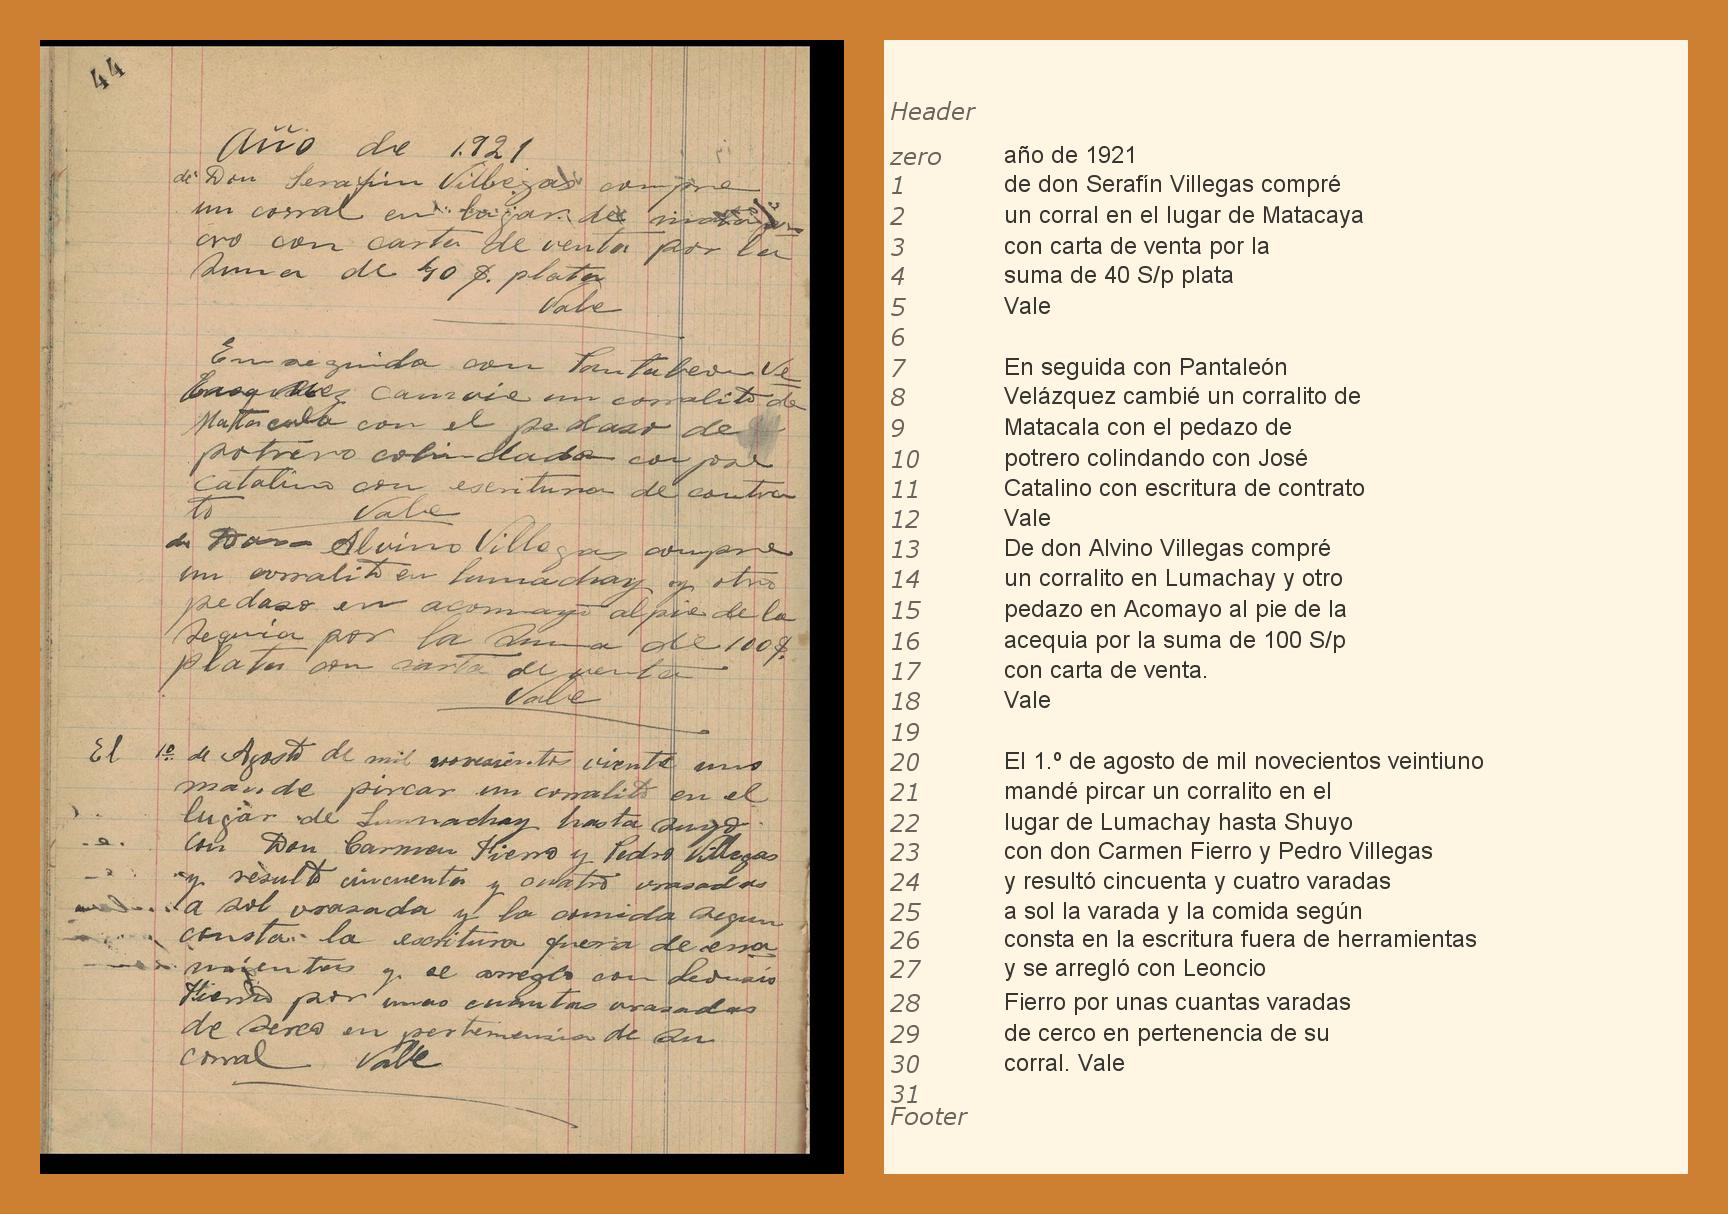 44
Año de 1921
de Don Serafin Villegas compre
un corral en lugar de
cro con carta de venta por la
suma de 40 $. plata
Vale
En seguida con Pantaleon Ve
lasquez camvie un corralito de
Mattacala con el pedazo de
potrero colindado con jose
Catalino con escritura de contra
to Vale
de Don Alvino Villegas compre
un corralito en lumachay y otro
pedazo en acomayo al pie de la
sequia por la suma de 100 $.
plata con carta de venta
Vale
El 1º de Agosto de mil novecientos viente uno
mande pircar un corralito en el
lugar de Lumachay hasta suyo
con Don Carmen Fierro y Pedro Villegas
y resultó cincuenta y cuatro varadas
a sol varada y la comida segun
consta la escritura fuera de erra
mientas y se arreglo con Leonsio
Fierro por unas cuantas varadas
de serco en pertenensia de su
corral Valle
Header
zero año de 1921
1 de don Serafín Villegas compré
2 un corral en el lugar de Matacaya
3 con carta de venta por la
4 suma de 40 S/p plata
5 Vale
6
7 En seguida con Pantaleón
8 Velázquez cambié un corralito de
9 Matacala con el pedazo de
10 potrero colindando con José
11 Catalino con escritura de contrato
12 Vale
13 De don Alvino Villegas compré
14 un corralito en Lumachay y otro
15 pedazo en Acomayo al pie de la
16 acequia por la suma de 100 S/p
17 con carta de venta.
18 Vale
19
20 El 1.º de agosto de mil novecientos veintiuno
21 mandé pircar un corralito en el
22 lugar de Lumachay hasta Shuyo
23 con don Carmen Fierro y Pedro Villegas
24 y resultó cincuenta y cuatro varadas
25 a sol la varada y la comida según
26 consta en la escritura fuera de herramientas
27 y se arregló con Leoncio
28 Fierro por unas cuantas varadas
29 de cerco en pertenencia de su
30 corral. Vale
31
Footer